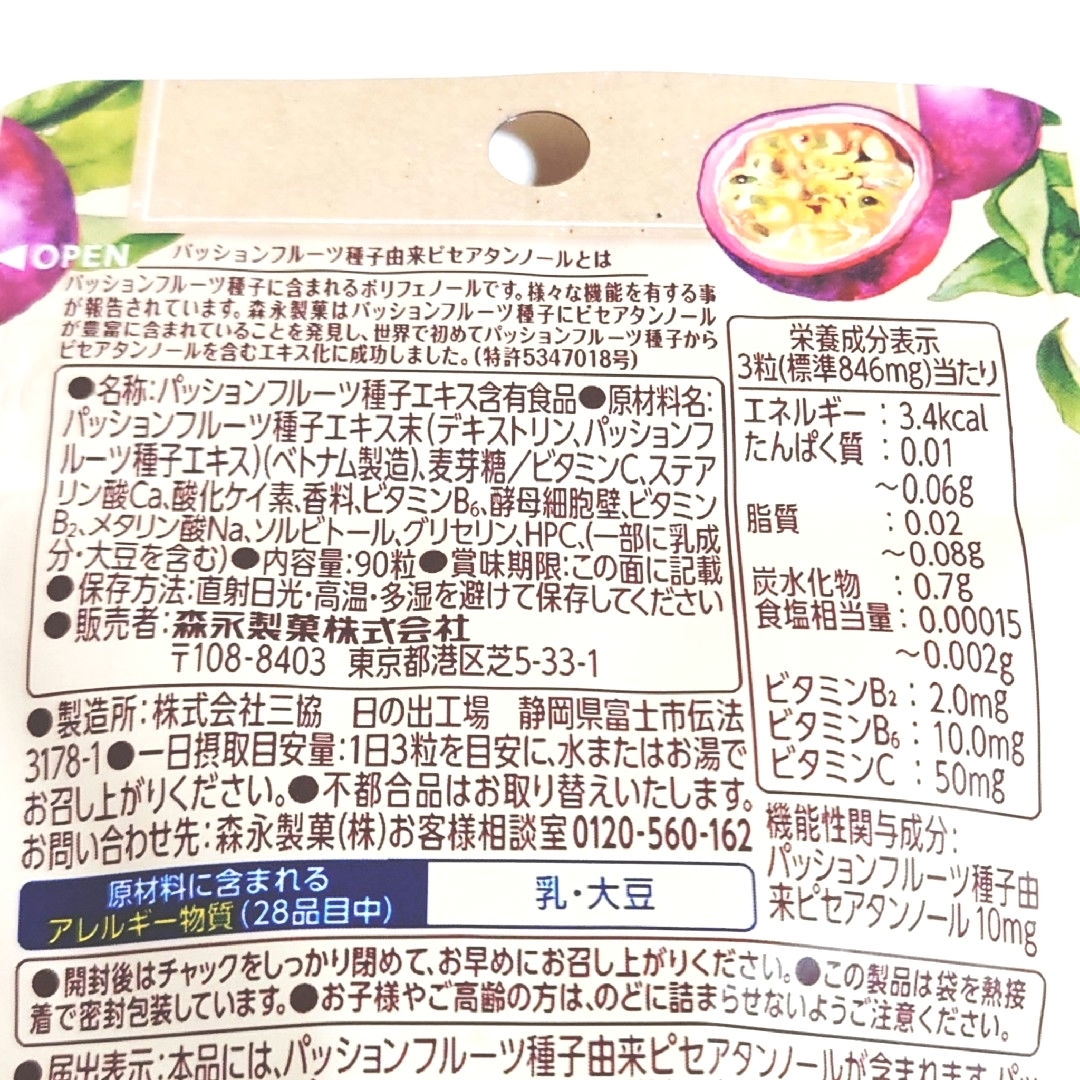 OPEN
パッションフルーツ種子由来ピセアタンノールとは
パッションフルーツ種子に含まれるポリフェノールです。様々な機能を有する事
が報告されています。森永製菓はパッションフルーツ種子にピセアタンノール
が豊富に含まれていることを発見し、世界で初めてパッションフルーツ種子から
ピセアタンノールを含むエキス化に成功しました。(特許5347018号)
●名称:パッションフルーツ種子エキス含有食品●原材料名:
パッションフルーツ種子エキス末(デキストリン、パッションフ
ルーツ種子エキス)(ベトナム製造)、麦芽糖/ビタミンC、ステア
リン酸Ca、酸化ケイ素、香料、ビタミンB₆、酵母細胞壁、ビタミン
B₂、メタリン酸Na、ソルビトール、グリセリン、HPC、(一部に乳成
分・大豆を含む)●内容量:90粒●賞味期限:この面に記載
●保存方法:直射日光・高温・多湿を避けて保存してください
●販売者:森永製菓株式会社
〒108-8403 東京都港区芝5-33-1
●製造所:株式会社三協 日の出工場 静岡県富士市伝法
3178-1●一日摂取目安量:1日3粒を目安に、水またはお湯で
お召し上がりください。●不都合品はお取り替えいたします。
お問い合わせ先:森永製菓(株)お客様相談室0120-560-162
栄養成分表示
3粒(標準846mg)当たり
エネルギー:3.4kcal
たんぱく質:0.01
～0.06g
脂質:0.02
～0.08g
炭水化物:0.7g
食塩相当量:0.00015
～0.002g
ビタミンB₂:2.0mg
ビタミンB₆:10.0mg
ビタミンC:50mg
機能性関与成分:
パッションフルーツ種子由
来ピセアタンノール10mg
原材料に含まれる
アレルギー物質(28品目中)
乳・大豆
●開封後はチャックをしっかり閉めて、お早めにお召し上がりください。●この製品は袋を熱接
着で密封包装しています。●お子様やご高齢の方は、のどに詰まらせないようご注意ください。
●届出表示:本品には、パッションフルーツ種子由来ピセアタンノールが含まれます。パッ